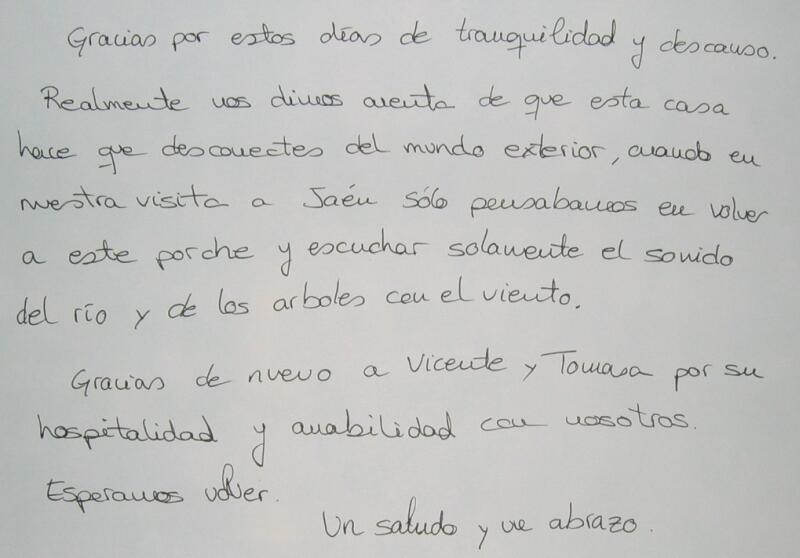 Gracias por estos días de tranquilidad y descanso.
Realmente nos dimos cuenta de que esta casa
hace que desconectes del mundo exterior, cuando en
nuestra visita a Jaén sólo pensabamos en volver
a este porche y escuchar solamente el sonido
del río y de los arboles con el viento.
Gracias de nuevo a Vicente y Tomasa por su
hospitalidad y amabilidad con nosotros.
Esperamos volver.
Un saludo y un abrazo.